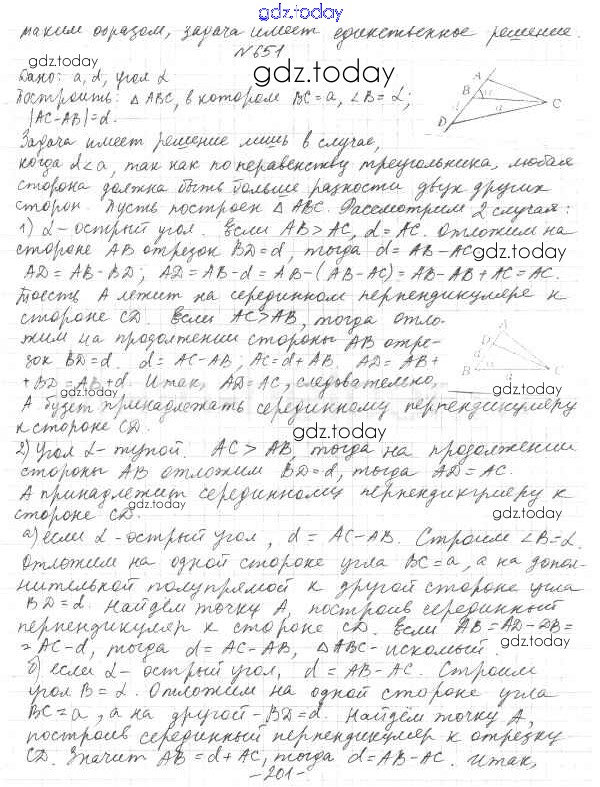 gdz.today
таким образом, задача имеет единственное решение.
№651
gdz.today
Дано: a, d, угол α
Построить: △ABC, в котором BC=a, ∠B=α;
|AC-AB|=d.
A
B
α
C
d
a
D
Задача имеет решение лишь в случае,
когда d<a, так как по неравенству треугольника, любая
сторона должна быть больше разности двух других
gdz.today
сторон. Пусть построен △ABC. Рассмотрим 2 случая:
1) α-острый угол. Если AB>AC, d=AC. Отложим на
стороне AB отрезок BD=d, тогда d=AB-AC
gdz.today
AD=AB-BD; AD=AB-d=AB-(AB-AC)=AB-AB+AC=AC.
Тоесть A лежит на серединном перпендикуляре к
стороне CD. Если AC>AB, тогда отло-
жим на продолжении стороны AB отре-
зок BD=d. d=AC-AB; AC=d+AB. AD=AB+
+BD=AB+d. Итак, AD=AC, следовательно,
A
D
d
B
α
C
a
gdz.today
gdz.today
A будет принадлежать серединному перпендикуляру
к стороне CD.
gdz.today
2) Угол α-тупой. AC>AB, тогда на продолжении
стороны AB отложим BD=d, тогда AD=AC.
gdz.today
A принадлежит серединному перпендикуляру к
стороне CD.
gdz.today
а) если α-острый угол, d=AC-AB. Строим ∠B=α.
Отложим на одной стороне угла BC=a, а на допол-
gdz.today
нительной полупрямой к другой стороне угла
BD=d. Найдём точку A, построив серединный
перпендикуляр к стороне CD. Если AB=AD-DB=
=AC-d, тогда d=AC-AB, △ABC-искомый.
gdz.today
б) если α-острый угол, d=AB-AC. Строим
угол B=α. Отложим на одной стороне угла
gdz.today
BC=a, а на другой-BD=d. Найдём точку A,
gdz.today
построив серединный перпендикуляр к отрезку
CD. Значит AB=d+AC, тогда d=AB-AC. Итак,
-201-
gdz.today